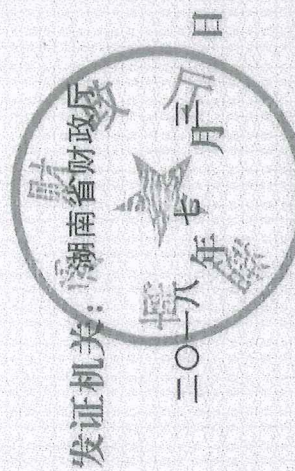 发证机关：湖南省财政厅
二〇一八年七月三日